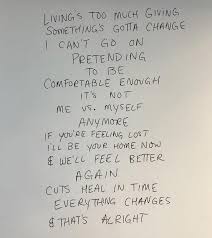 LIVING'S TOO MUCH GIVING
SOMETHING'S GOTTA CHANGE
I CAN'T GO ON
PRETENDING
TO BE
COMFORTABLE ENOUGH
IT'S NOT
ME VS. MYSELF
ANYMORE
IF YOU'RE FEELING LOST
I'LL BE YOUR HOME NOW
& WE'LL FEEL BETTER
AGAIN
CUTS HEAL IN TIME
EVERYTHING CHANGES
& THAT'S ALRIGHT